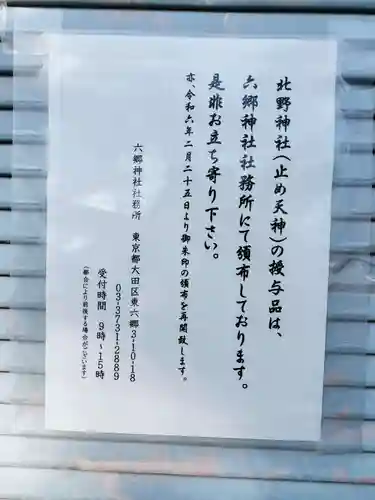 北野神社(止め天神)の授与品は、
六郷神社社務所にて頒布しております。
是非お立ち寄り下さい。
亦、令和六年二月二十五日より御朱印の頒布を再開致します。※
六郷神社社務所　東京都大田区東六郷3-10-18
03-3731-2889
受付時間　9時~15時
(都合により前後する場合がございます)